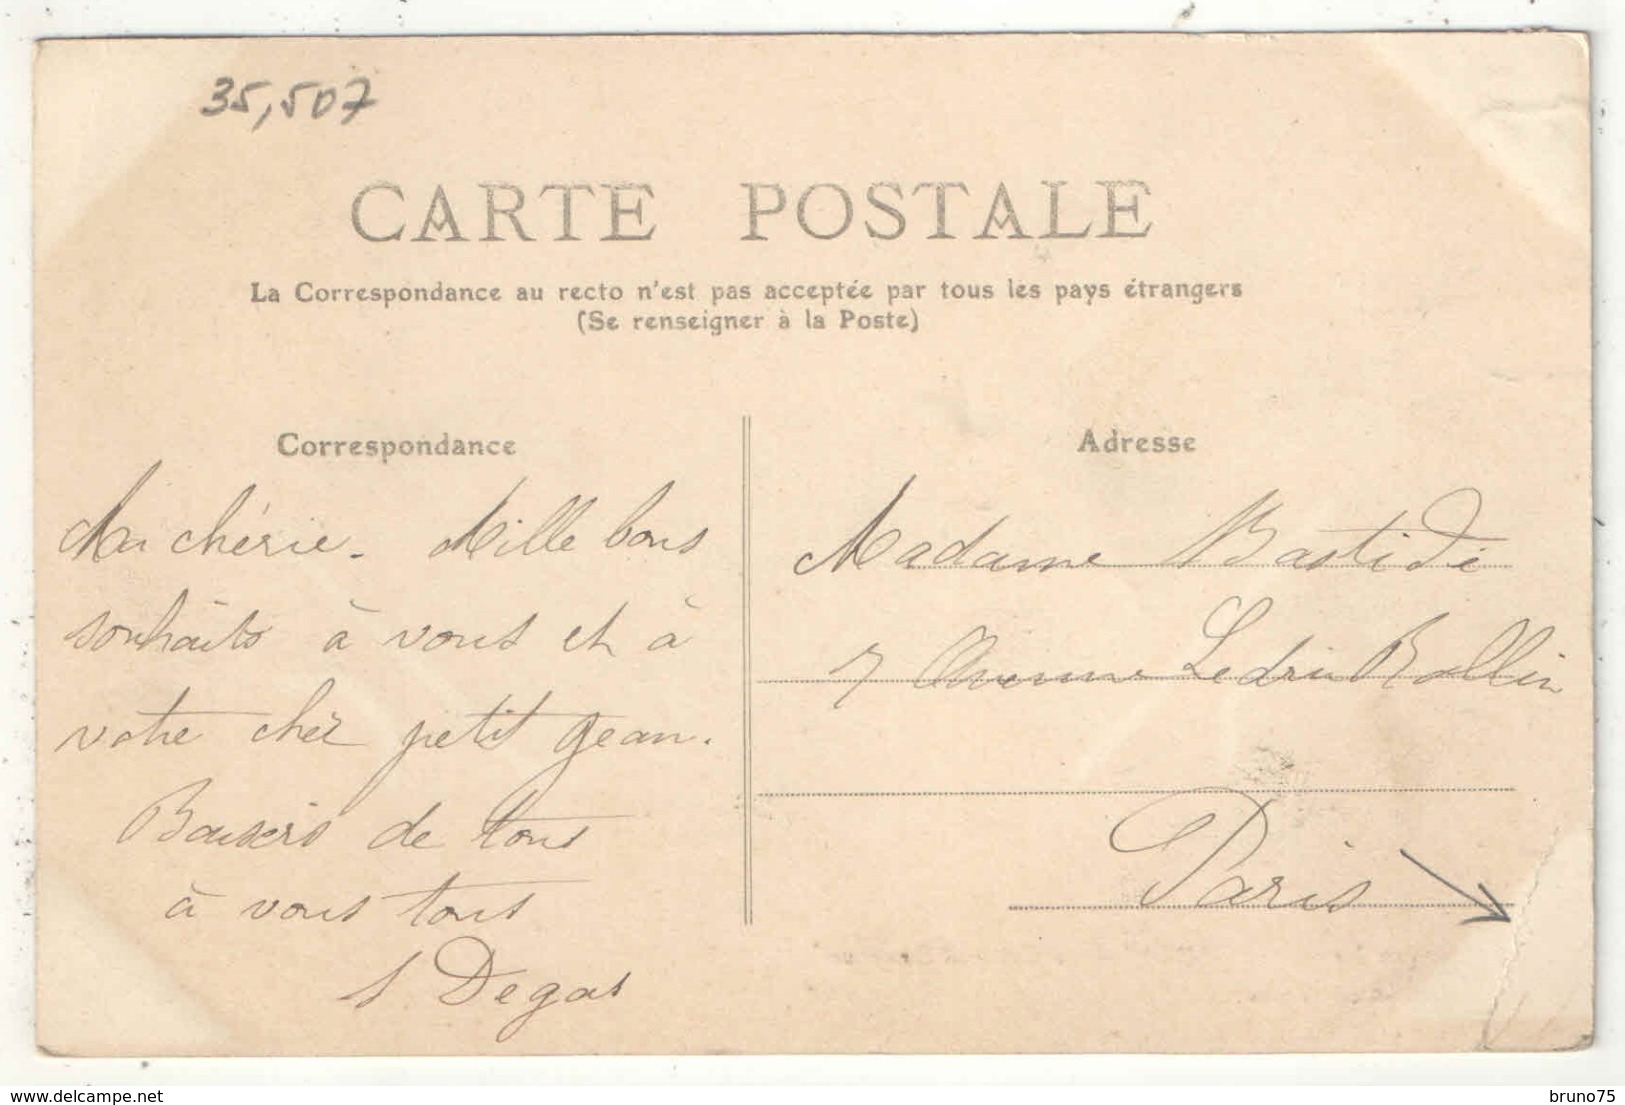 35,507
CARTE POSTALE
La Correspondance au recto n'est pas acceptée par tous les pays étrangers
(Se renseigner à la Poste)
Correspondance
Ma chérie. Mille bons
souhaits à vous et à
votre cher petit Jean.
Baisers de tous
à vous tous
S Degas
Adresse
Madame Bastide
7 Avenue Ledru Rollin
Paris
www.delcampe.net
bruno75